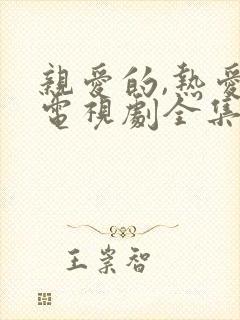 親愛的,熱愛
電視劇全集
王崇智